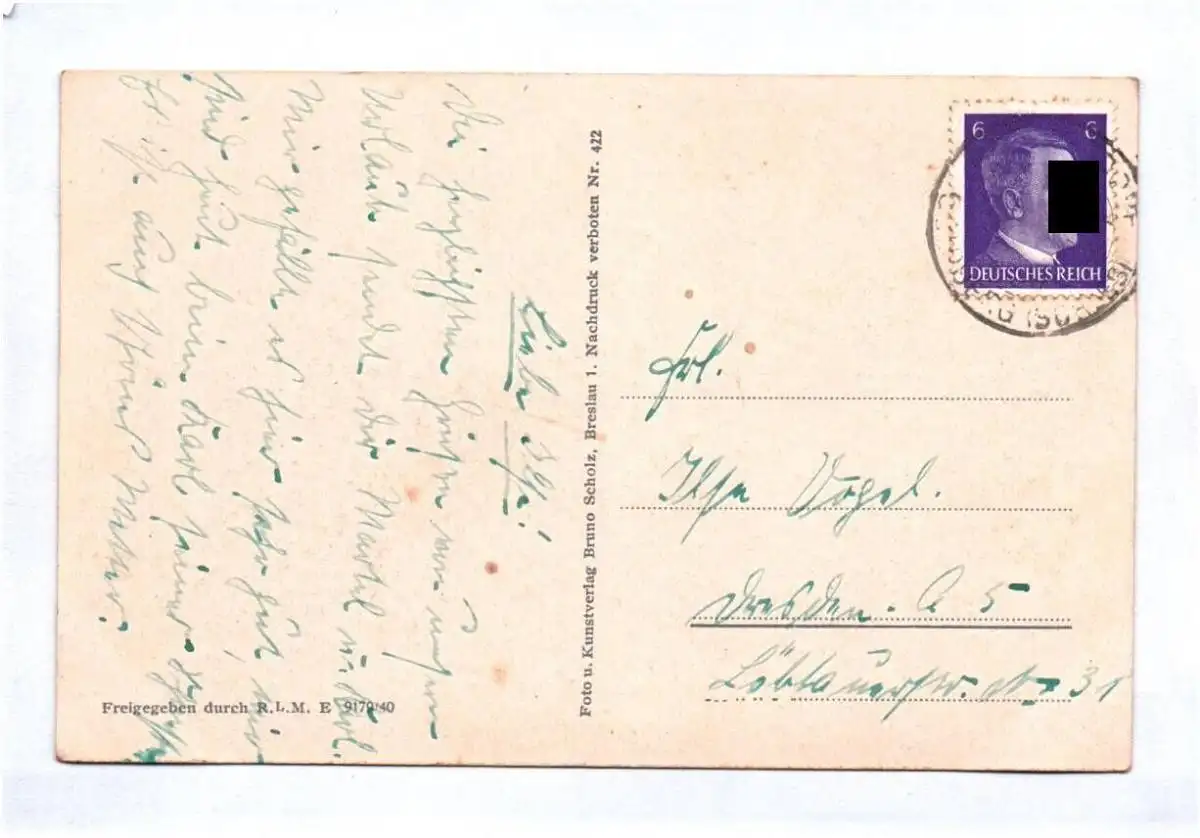 Liebe Ilse!
Die herzlichsten Grüße von unserem
Urlaub sendet dir Martel u. Karl.
Mir gefällt es hier sehr gut, wir
sind heut beim Karl seiner
Es ist auch Mutter.
Freigegeben durch R.L.M. E 9179/40
Foto u. Kunstverlag Bruno Scholz, Breslau 1. Nachdruck verboten Nr. 422
6 6
DEUTSCHES REICH
Frl.
Ilse Vogel.
Dresden. A 5
Löbtauerstr. No 31